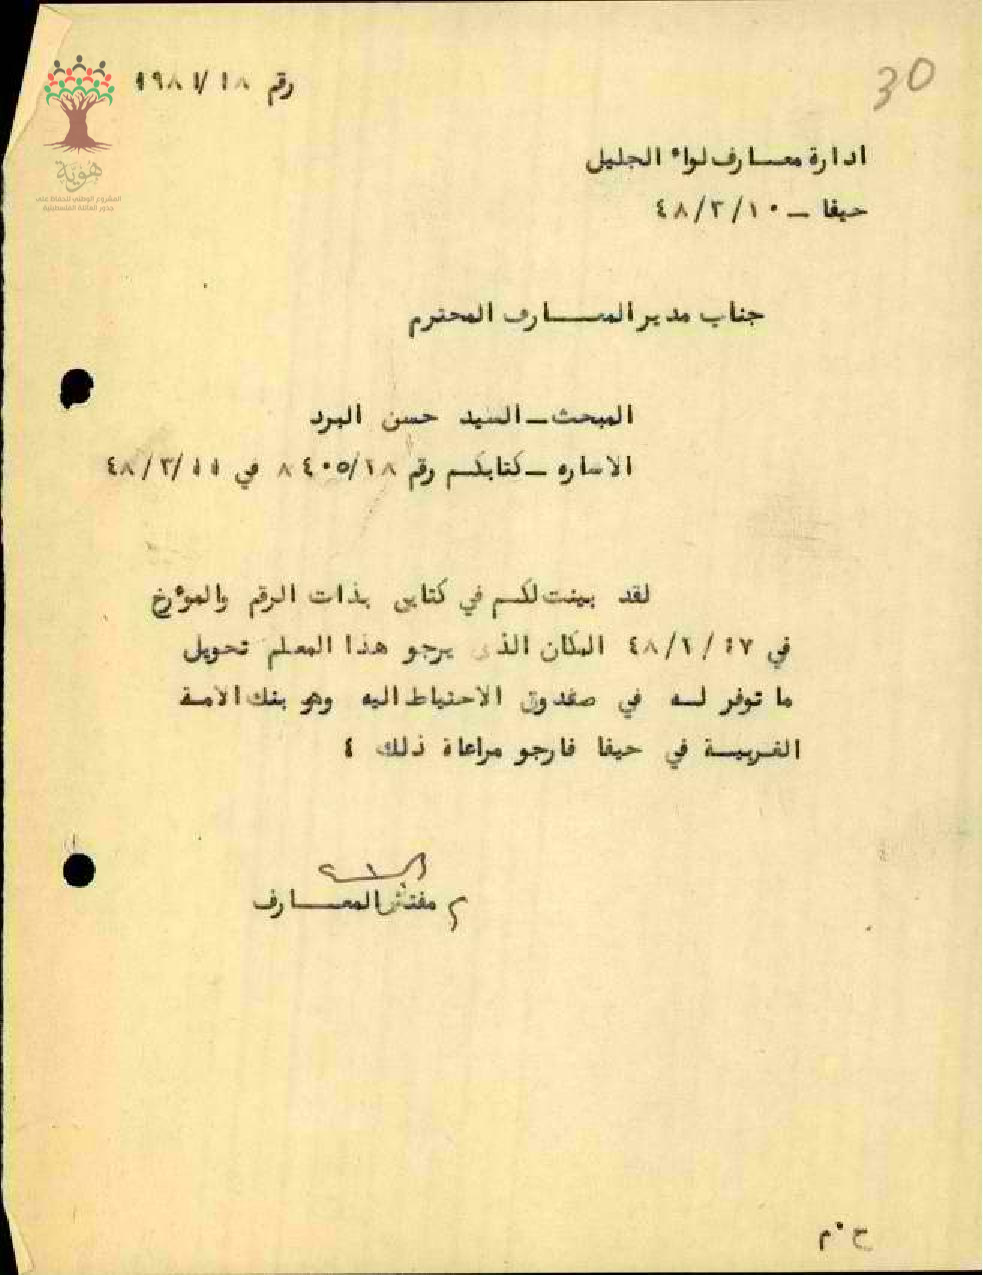 30
رقم ١٨/ ١٩٨١
هَوِيَّة
المشروع الوطني للحفاظ على
جذور العائلة الفلسطينية
ادارة معارف لواء الجليل
حيفا - ٤٨/٣/١٠
جناب مدير المعارف المحترم
المبحث - السيد حسن البرد
الاشاره - كتابكم رقم في
لقد بينت لكم في كتابي بذات الرقم والمؤرخ
في المكان الذى يرجو هذا المعلم تحويل
ما توفر له في صندوق الاحتياط اليه وهو بنك الامة
العربية في حيفا فارجو مراعاة ذلك ٤
مفتش المعارف
ح ٠ م